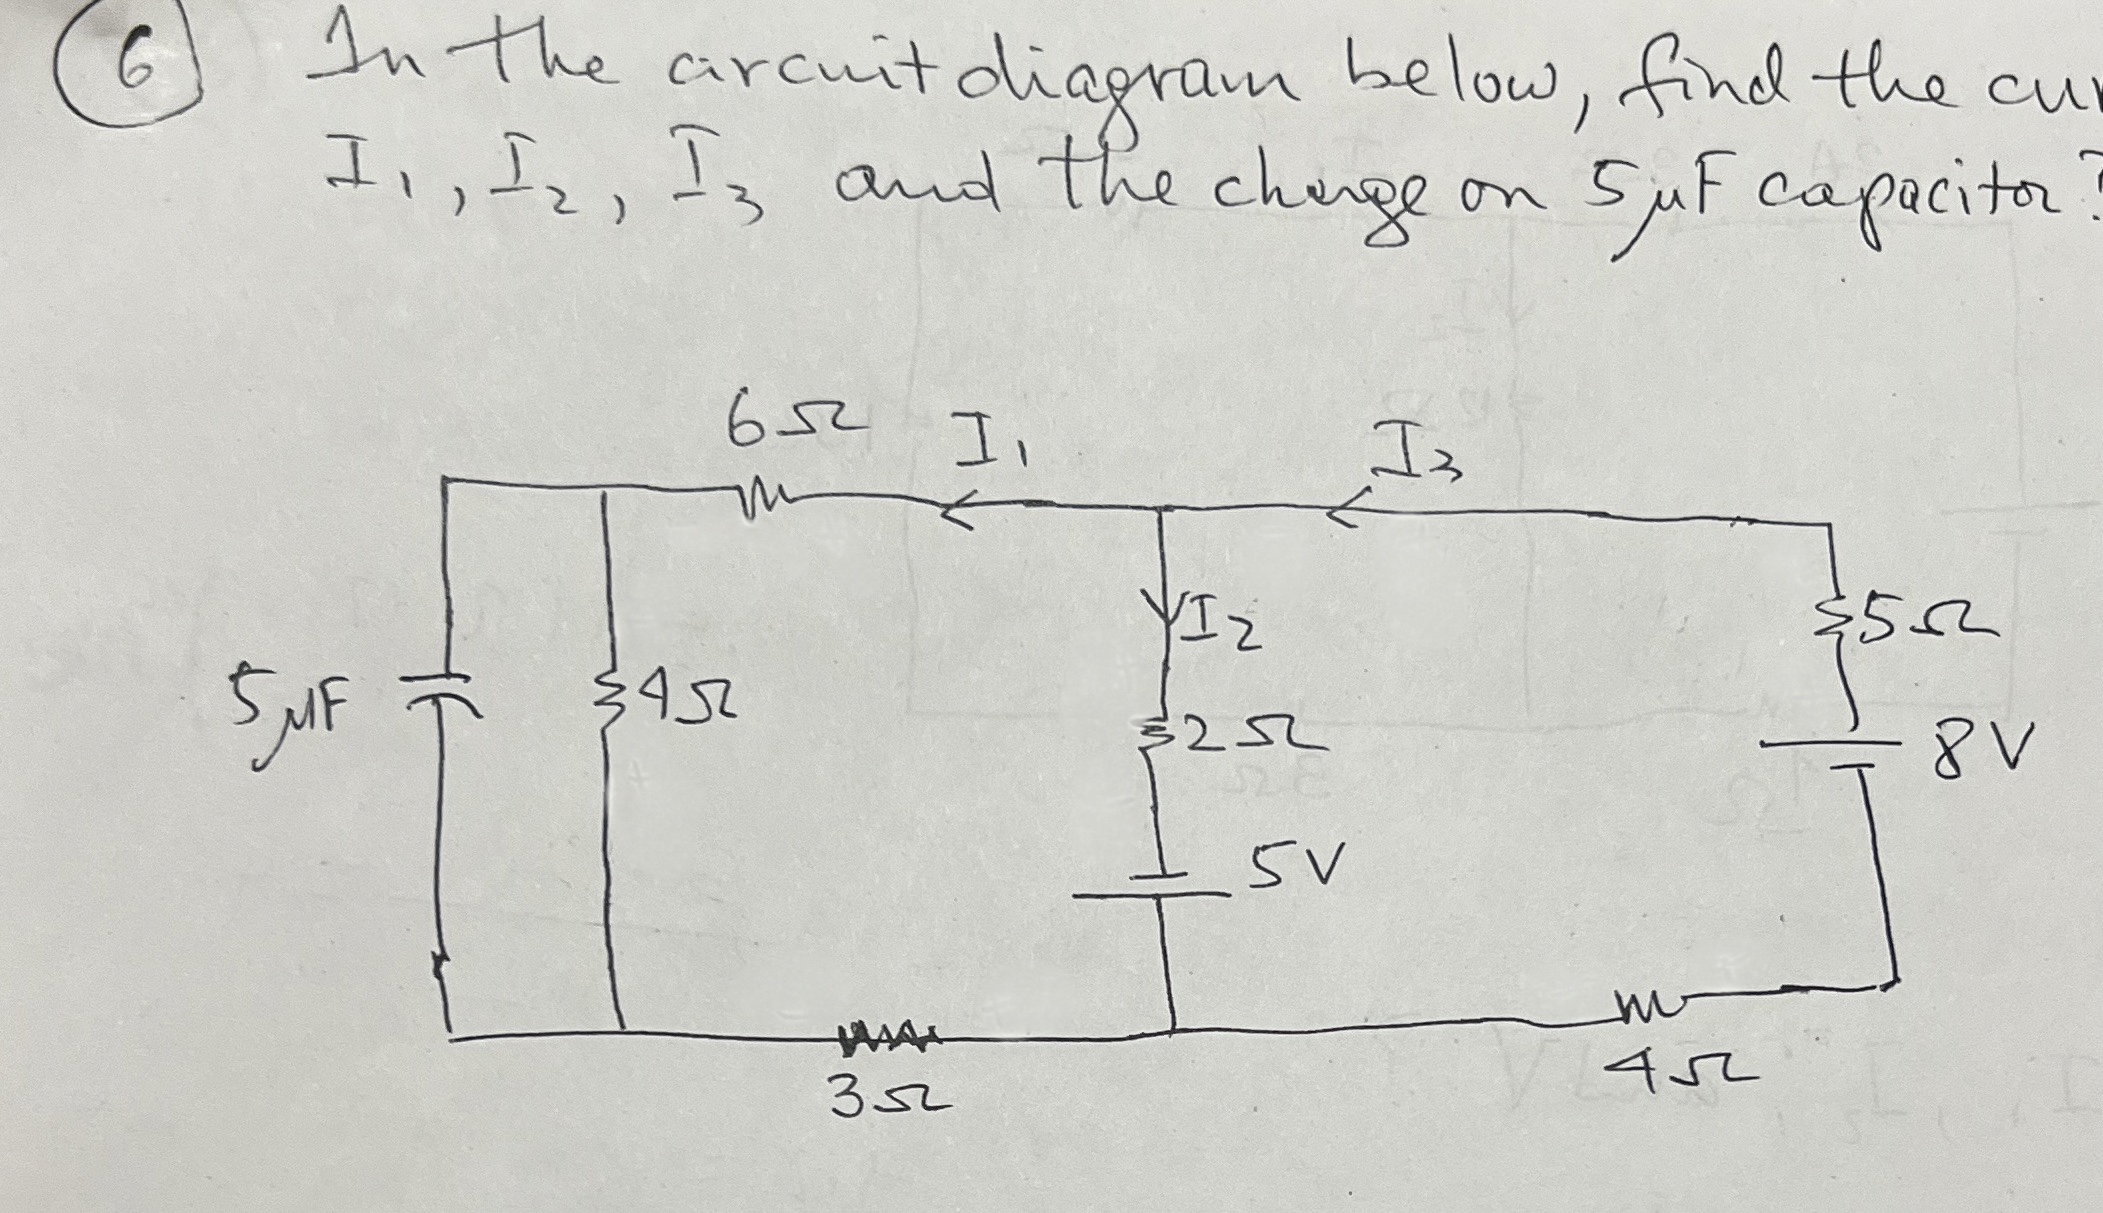 6 In the circuit diagram below, find the cur
I1, I2, I3 and the charge on 5 μF capacitor?
6Ω I1 I3
I2
5Ω
5μF 4Ω 2Ω 8V
5V
3Ω 4Ω